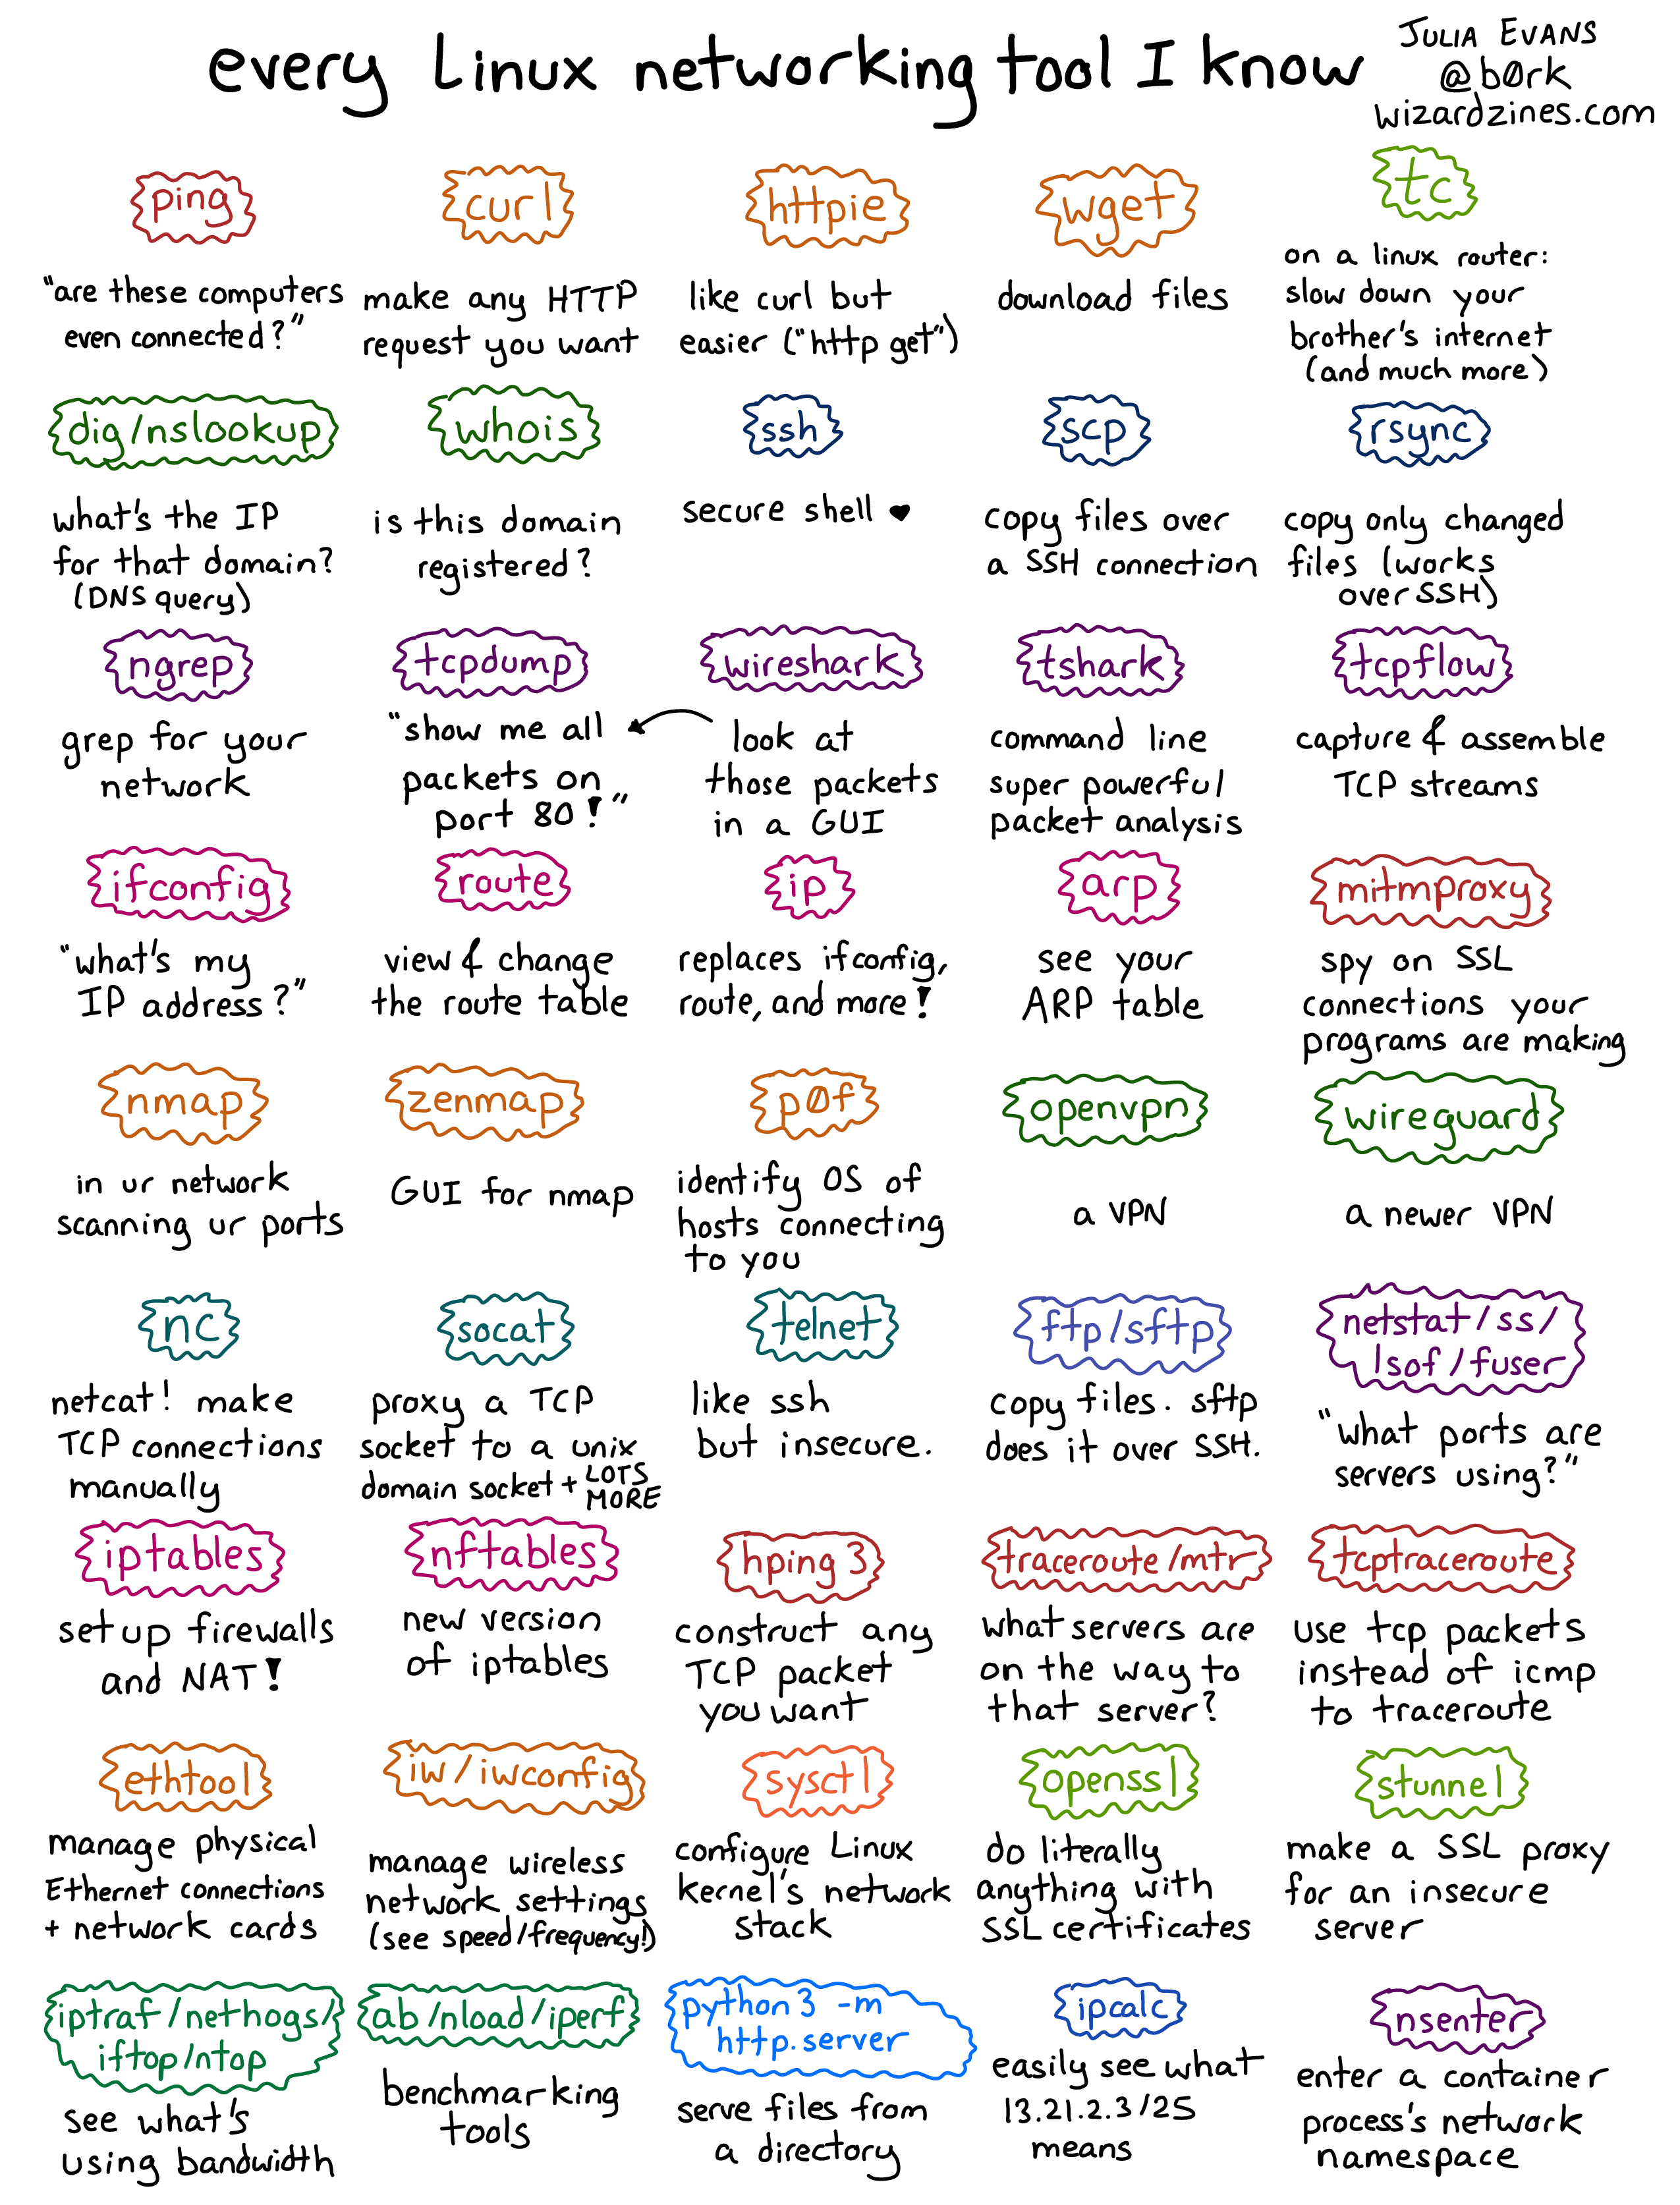 every Linux networking tool I know
JULIA EVANS
@b0rk
wizardzines.com
ping
"are these computers
even connected?"
curl
make any HTTP
request you want
httpie
like curl but
easier ("http get")
wget
download files
tc
on a linux router:
slow down your
brother's internet
(and much more)
dig/nslookup
what's the IP
for that domain?
(DNS query)
whois
is this domain
registered?
ssh
secure shell ♥
scp
copy files over
a SSH connection
rsync
copy only changed
files (works
over SSH)
ngrep
grep for your
network
tcpdump
"show me all
packets on
port 80!"
wireshark
look at
those packets
in a GUI
tshark
command line
super powerful
packet analysis
tcpflow
capture & assemble
TCP streams
ifconfig
"what's my
IP address?"
route
view & change
the route table
ip
replaces ifconfig,
route, and more!
arp
see your
ARP table
mitmproxy
spy on SSL
connections your
programs are making
nmap
in ur network
scanning ur ports
zenmap
GUI for nmap
p0f
identify OS of
hosts connecting
to you
openvpn
a VPN
wireguard
a newer VPN
nc
netcat! make
TCP connections
manually
socat
proxy a TCP
socket to a unix
domain socket + LOTS
MORE
telnet
like ssh
but insecure.
ftp/sftp
copy files. sftp
does it over SSH.
netstat/ss/
lsof/fuser
"what ports are
servers using?"
iptables
set up firewalls
and NAT!
nftables
new version
of iptables
hping3
construct any
TCP packet
you want
traceroute/mtr
what servers are
on the way to
that server?
tcptraceroute
use tcp packets
instead of icmp
to traceroute
ethtool
manage physical
Ethernet connections
+ network cards
iw/iwconfig
manage wireless
network settings
(see speed/frequency!)
sysctl
configure Linux
kernel's network
stack
openssl
do literally
anything with
SSL certificates
stunnel
make a SSL proxy
for an insecure
server
iptraf/nethogs/
iftop/ntop
see what's
using bandwidth
ab/nload/iperf
benchmarking
tools
python3 -m
http.server
serve files from
a directory
ipcalc
easily see what
13.21.2.3/25
means
nsenter
enter a container
process's network
namespace